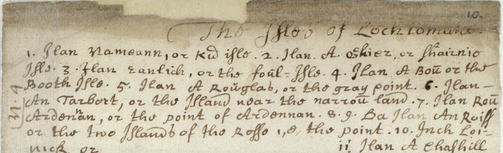 10.
The Isles of Lochlomund
1. Ilan Nameann, or Kid isle. 2. Ilan A oskier, or Shairnie
Isle. 3. Ilan Eanlich, or the foul-Isle. 4. Ilan A Bou or the
Booth Isle. 5. Ilan A Rouglas, or the gray point. 6. Ilan
An Tarbert, or the Island near the narrou land. 7. Ilan Rou
Ardenan, or the point of Ardennan. 8. 9. Ba Ilan An Roiss
or the two Islands of the Rosse i,e, the point. 10. Inch Loi-
nick or
11. Ilan A Chashill